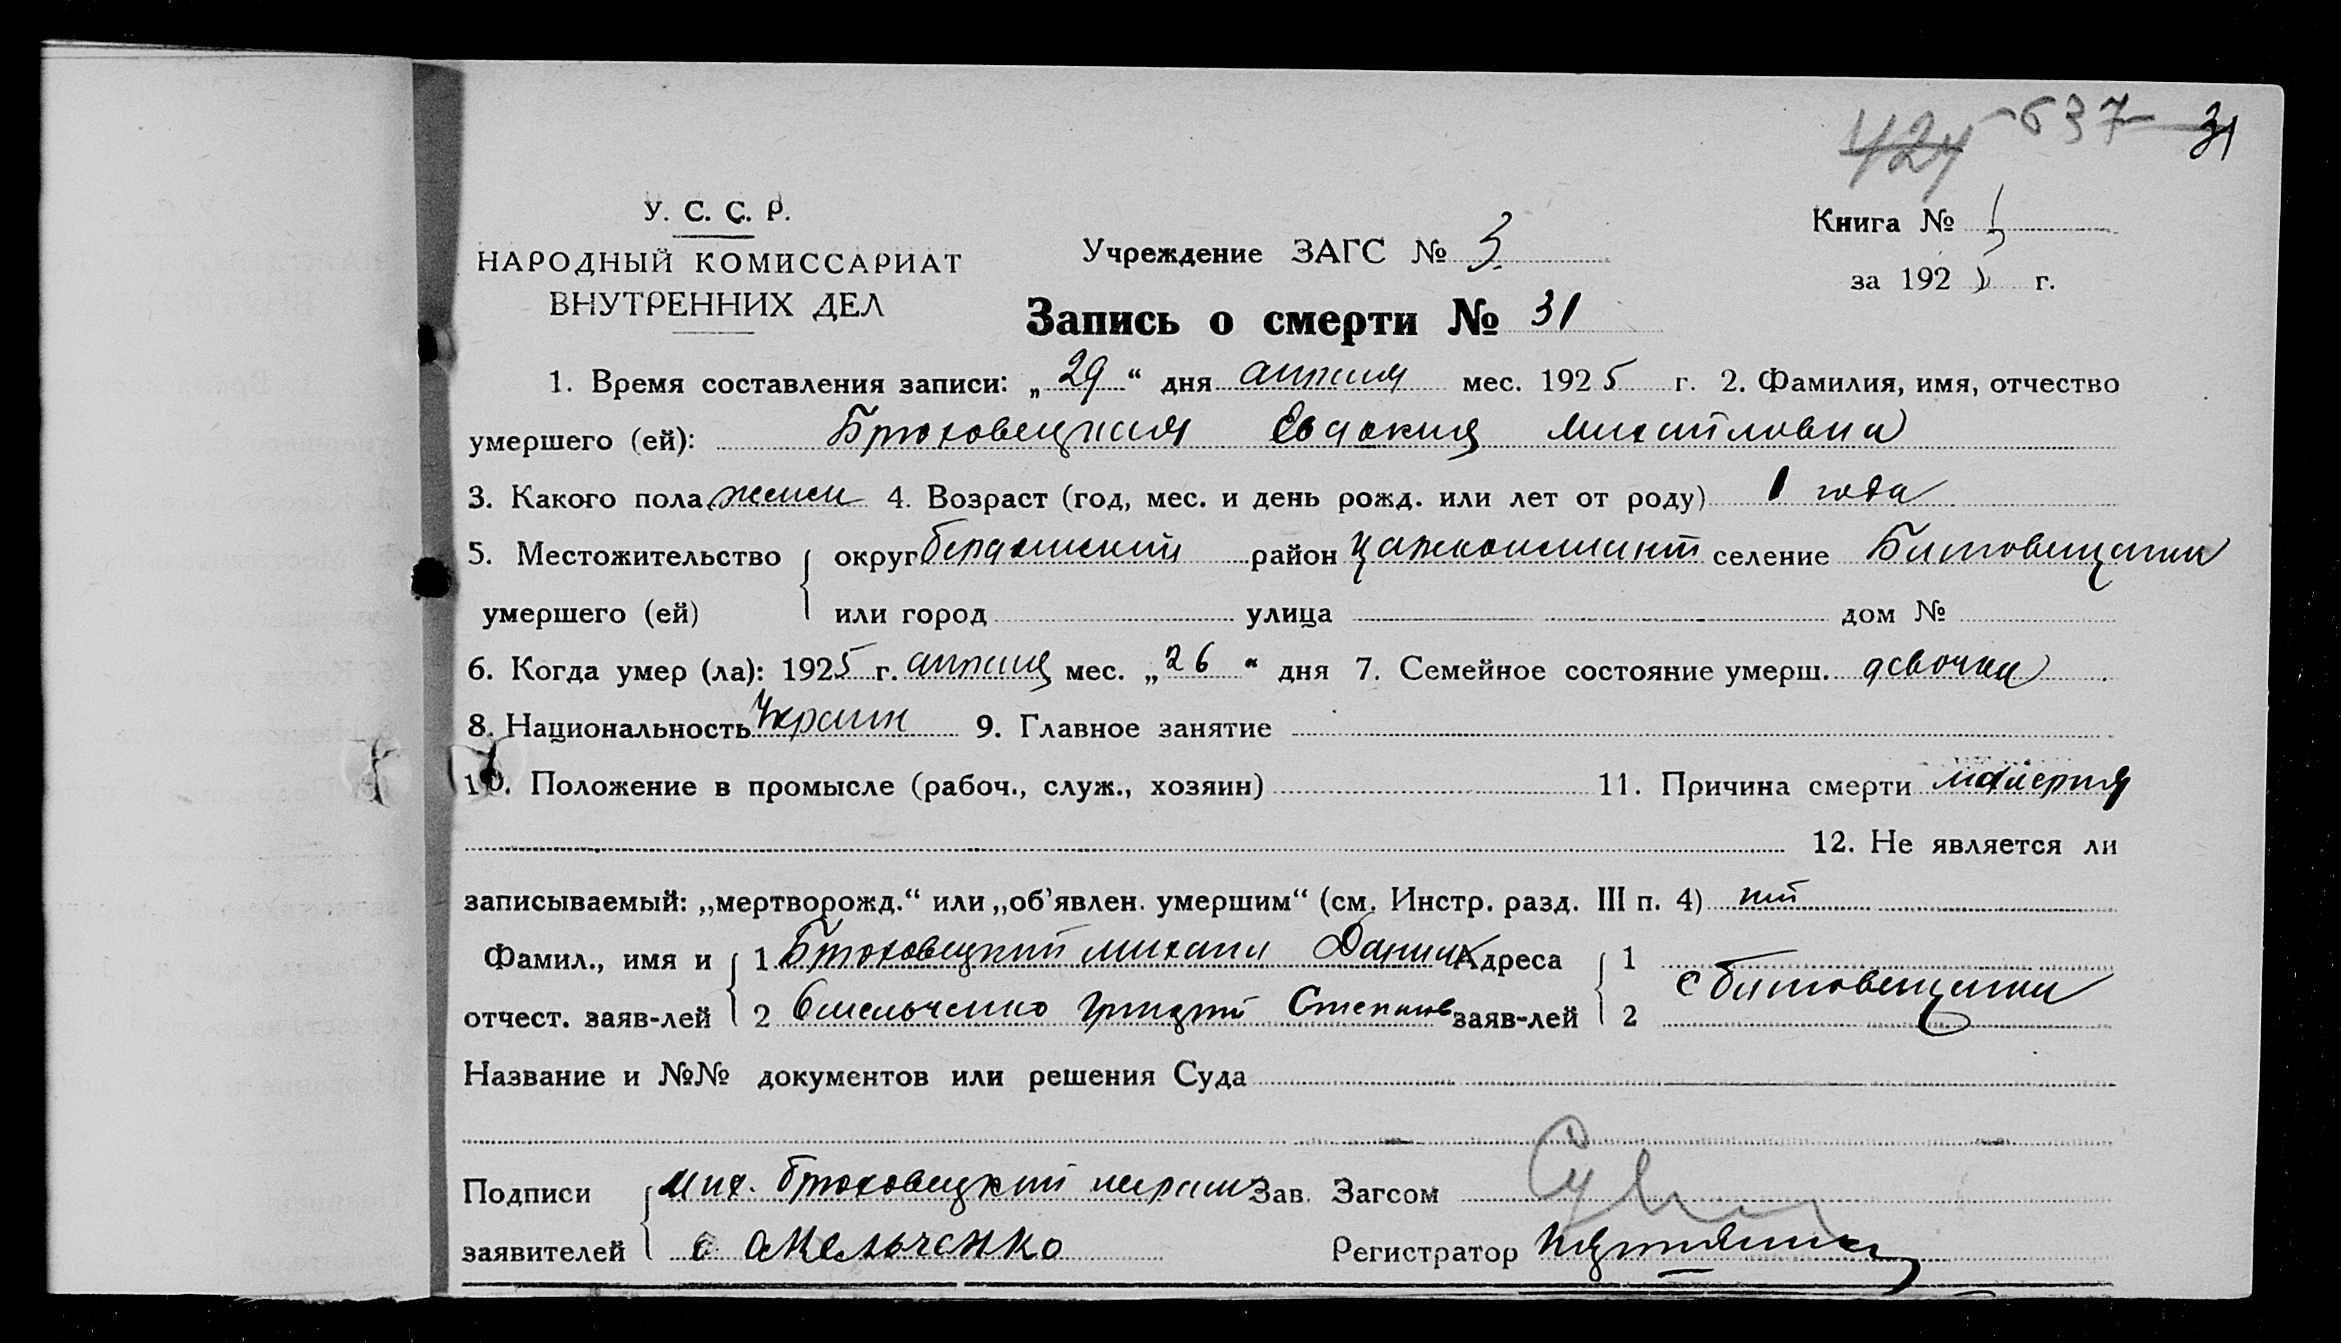 424 - 637 31
У. С. С. Р.
НАРОДНЫЙ КОМИССАРИАТ
ВНУТРЕННИХ ДЕЛ
Учреждение ЗАГС № 3.
Книга №
за 192 г.
Запись о смерти № 31
1. Время составления записи: „29“ дня апреля мес. 1925 г. 2. Фамилия, имя, отчество
умершего (ей): Брюховецкая Евдокия Михайловна
3. Какого пола женск 4. Возраст (год, мес. и день рожд. или лет от роду) 1 года
5. Местожительство округ Бердянский район Цареконстант селение
умершего (ей) или город улица дом №
6. Когда умер (ла): 1925 г. апреля мес. „26“ дня 7. Семейное состояние умерш. девочка
8. Национальность Украин 9. Главное занятие
10. Положение в промысле (рабоч., служ., хозяин) 11. Причина смерти малерия
12. Не является ли
записываемый: „мертворожд.“ или „об'явлен. умершим“ (см. Инстр. разд. III п. 4) нет
Фамил., имя и 1 Брюховецкий Михаил Данил Адреса 1
отчест. заяв-лей 2 Омельченко Григорий Степанов заяв-лей 2
Название и №№ документов или решения Суда
Подписи Мих. Брюховецкий Зав. Загсом
заявителей Омельченко Регистратор